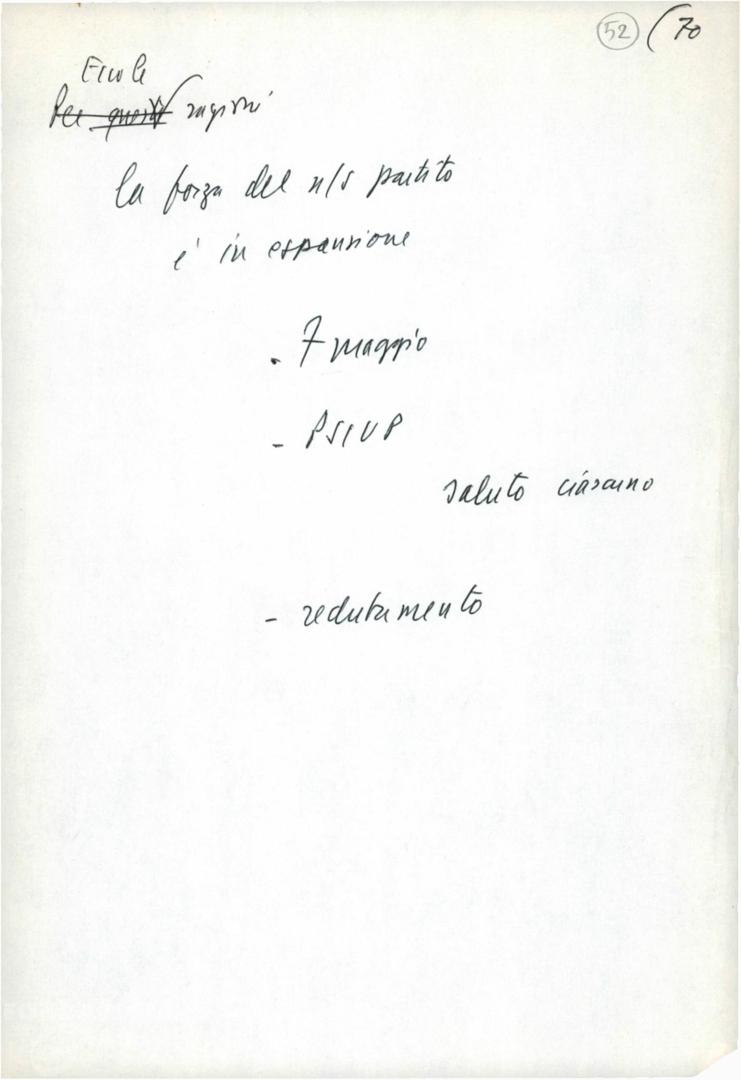 52 (70
E ... le
Per queste ragioni
la forza del n/s partito
e' in espansione
- 7 maggio
- PSIUP
saluto ciascuno
- reclutamento